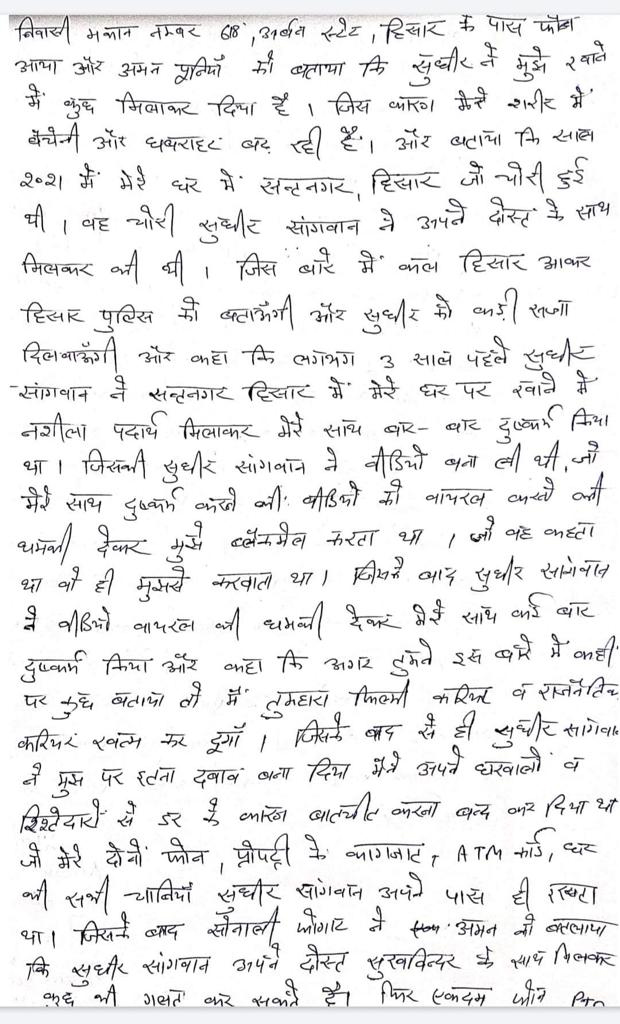 निवासी मकान नम्बर 618, अर्बन स्टेट, हिसार के पास फोन
आया और अमन पूनियाँ को बताया कि सुधीर ने मुझे खाने
में कुछ मिलाकर दिया है। जिस कारण मेरे शरीर में
बेचेनी और घबराहट बढ़ रही है। और बताया कि साल
2021 में मेरे घर में सन्तनगर, हिसार जो चोरी हुई
थी। वह चोरी सुधीर सांगवान ने अपने दोस्त के साथ
मिलकर की थी। जिस बारे में कल हिसार आकर
हिसार पुलिस को बताऊँगी और सुधीर को कड़ी सजा
दिलवाऊँगी और कहा कि लगभग 3 साल पहले सुधीर
सांगवान ने सन्तनगर हिसार में मेरे घर पर खाने में
नशीला पदार्थ मिलाकर मेरे साथ बार-बार दुष्कर्म किया
था। जिसकी सुधीर सांगवान ने वीडियो बना ली थी, जो
मेरे साथ दुष्कर्म करने की वीडियो को वायरल करने की
धमकी देकर मुझे ब्लैकमेल करता था। जो वह कहता
था वो ही मुझसे करवाता था। जिसके बाद सुधीर सांगवान
ने वीडियो वायरल की धमकी देकर मेरे साथ कई बार
दुष्कर्म किया और कहा कि अगर तुमने इस बारे में कहीं
पर कुछ बताया तो मैं तुम्हारा फिल्मी करियर व राजनैतिक
करियर खत्म कर दूगाँ। जिसके बाद से ही सुधीर सांगवान
ने मुझ पर इतना दबाव बना दिया मैंने अपने घरवालों व
रिश्तेदारों से डर के कारण बातचीत करना बन्द कर दिया था
जो मेरे दोनों फोन, प्रोपर्टी के कागजात, ATM कार्ड, घर
की सभी चाबियाँ सुधीर सांगवान अपने पास ही रखता
था। जिसके बाद सोनाली फोगाट ने अमन को बतलाया
कि सुधीर सांगवान अपने दोस्त सुखविन्दर के साथ मिलकर
कुछ भी गलत कर सकते है। फिर एकदम फोन PTO